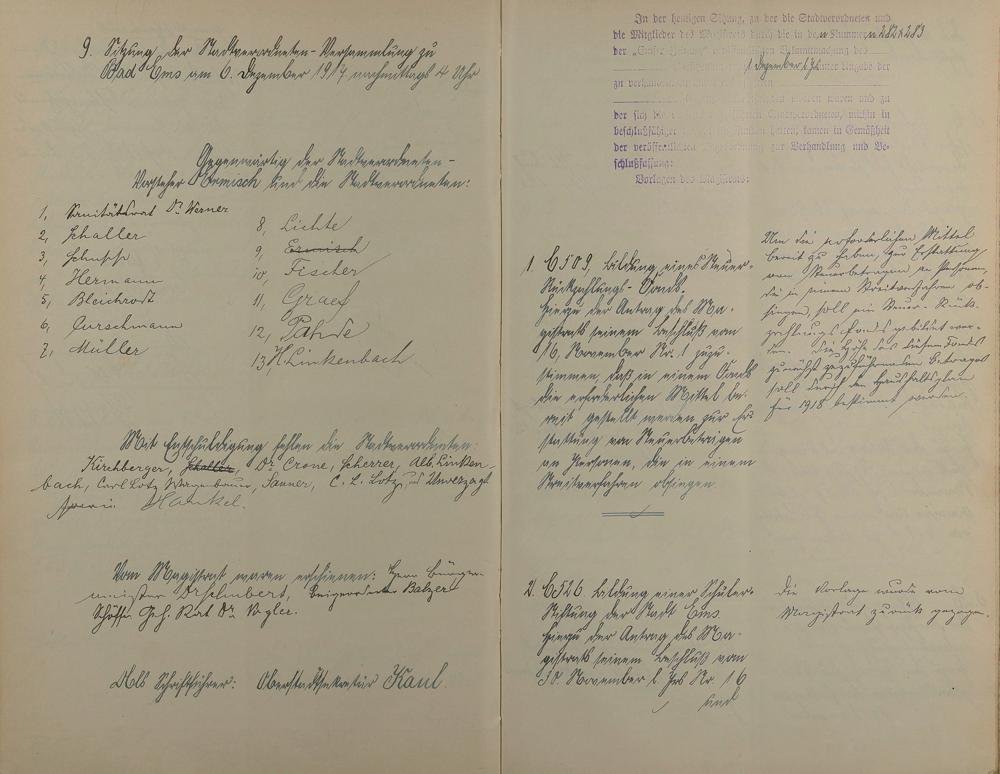 9. Sitzung der Stadtverordneten-Versammlung zu
Bad Ems am 6. Dezember 1917 nachmittags 4 Uhr
Gegenwärtig der Stadtverordneten-
Vorsteher Ermisch und die Stadtverordneten:
1, Sanitätsrat Dr Werner
2, Schaller
3, Schupp
4, Hermann
5, Bleichrodt
6, Curschmann
7, Müller
8, Lichte
9, Ermisch
10, Fischer
11, Graef
12, Pahde
13 H Linkenbach
Mit Entschuldigung fehlen die Stadtverordneten:
Kirchberger, Schaller, Dr Crone, Scherrer, Alb. Linken-
bach, Carl Lotz, Sanner, C. L. Lotz, und Unverzagt
Hankel.
Vom Magistrat waren erschienen: Herr Bürger-
meister Dr Schubert, Beigeordneter Balzer
Schöffe Geh. Rat Dr Vogler.
Als Schriftführer: Oberstadtsekretär Kaul.
In der heutigen Sitzung, zu der die Stadtverordneten und
die Mitglieder des Magistrats durch die in den Nummern 282 u 283
der „Emser Zeitung“ Bekanntmachung des
1 Dezember unter Angabe der
zu
waren und zu
der sich die Stadtverordneten, mithin in
beschlußfähiger hatten, kamen in Gemäßheit
der veröffentlichten Tagesordnung zur Verhandlung und Be-
schlußfassung:
Vorlagen des Magistrats:
1. C 509, Bildung eines Steuer-
Rückzahlungs-Fonds.
Hierzu der Antrag des Ma-
gistrats seinem Beschluß vom
16. November Nr. 1 zuzu-
stimmen, daß in einem Fonds
die erforderlichen Mittel be-
reit gestellt werden zur Er-
stattung von Steuerbeträgen
an Personen, die in einem
Streitverfahren obsiegen.
Um die erforderlichen Mittel
bereit zu haben, zur Erstattung
von Steuerbeträgen an Personen,
die in einem Streitverfahren ob-
siegen, soll ein Steuer-Rück-
zahlungs Fonds gebildet wer-
den. Die Höhe des diesem Fonds
zunächst zuzuführenden Betrages
soll durch den Haushaltsplan
für 1918 bestimmt werden.
2. C 526 Bildung einer Schüler-
Stiftung der Stadt Ems.
Hierzu der Antrag des Ma-
gistrats seinem Beschluß vom
30. November l Jrs Nr. 16
und
Die Vorlage wurde vom
Magistrat zurück gezogen.